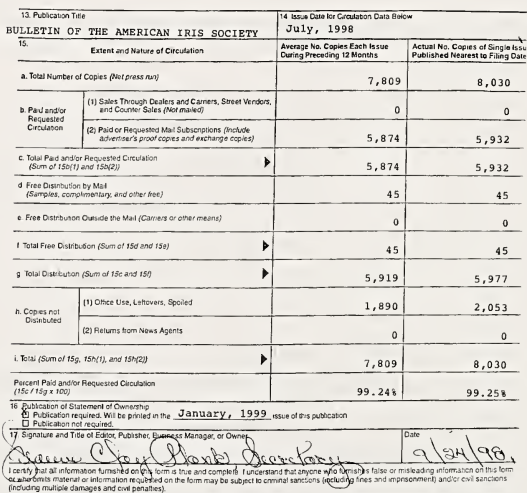 13. Publication Title
14 Issue Date for Circulation Data Below
BULLETIN OF THE AMERICAN IRIS SOCIETY
July, 1998
15.
Extent and Nature of Circulation
Average No. Copies Each Issue During Preceding 12 Months
Actual No. Copies of Single Issu Published Nearest to Filing Date
a. Total Number of Copies (Net press run)
7,809
8,030
b. Paid and/or Requested Circulation
(1) Sales Through Dealers and Carriers, Street Vendors, and Counter Sales (Not mailed)
0
0
(2) Paid or Requested Mail Subscriptions (Include advertiser's proof copies and exchange copies)
5,874
5,932
c. Total Paid and/or Requested Circulation (Sum of 15b(1) and 15b(2))
5,874
5,932
d Free Distribution by Mail (Samples, complimentary, and other free)
45
45
e Free Distribution Outside the Mail (Carriers or other means)
0
0
f Total Free Distribution (Sum of 15d and 15e)
45
45
g Total Distribution (Sum of 15c and 15f)
5,919
5,977
h. Copies not Distributed
(1) Office Use, Leftovers, Spoiled
1,890
2,053
(2) Returns from News Agents
0
0
i. Total (Sum of 15g, 15h(1), and 15h(2))
7,809
8,030
Percent Paid and/or Requested Circulation (15c / 15g x 100)
99.24%
99.25%
16 Publication of Statement of Ownership
Publication required. Will be printed in the January, 1999 issue of this publication
Publication not required.
17. Signature and Title of Editor, Publisher, Business Manager, or Owner
Date
Secretary
9/24/98
I certify that all information furnished on this form is true and complete I understand that anyone who furnishes false or misleading information on this form
or who omits material or information requested on the form may be subject to criminal sanctions (including fines and imprisonment) and/or civil sanctions
(including multiple damages and civil penalties).